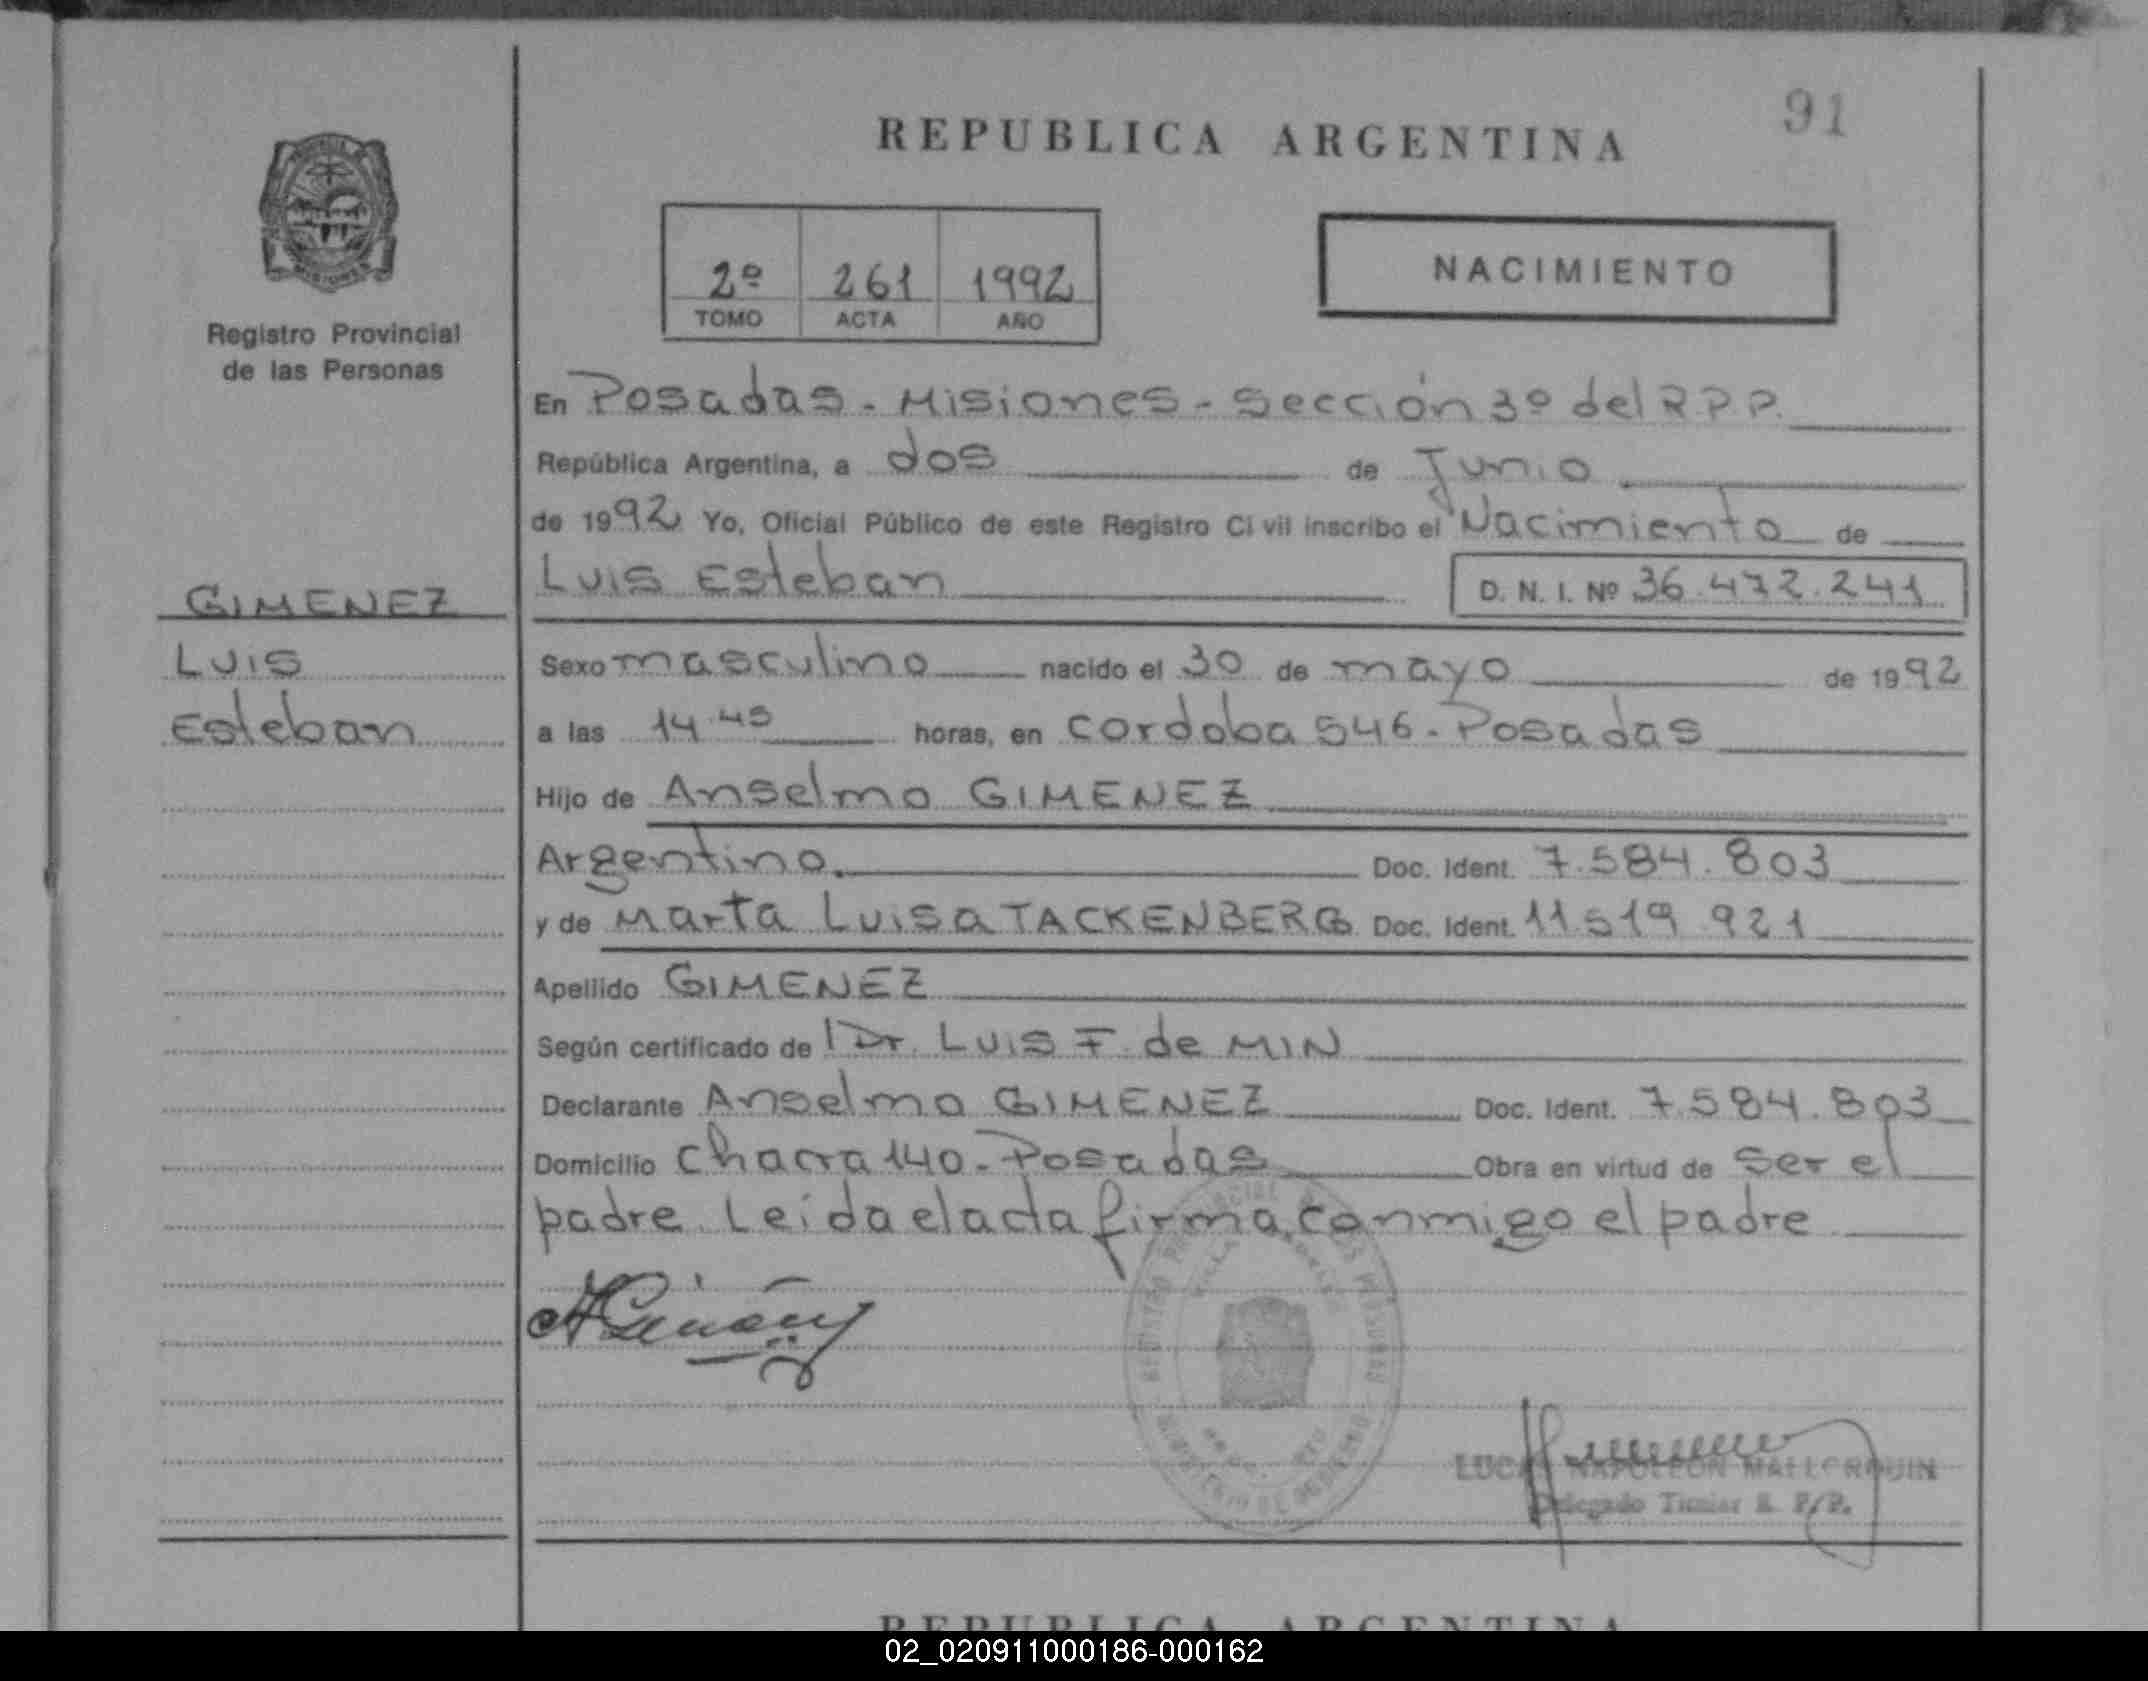 91
REPUBLICA ARGENTINA
2º 261 1992
TOMO ACTA AÑO
NACIMIENTO
Registro Provincial
de las Personas
En Posadas - Misiones - Sección 3º del R.P.P.
República Argentina, a dos de Junio
de 1992 Yo, Oficial Público de este Registro Civil inscribo el Nacimiento de
Luis Esteban D. N. I. Nº 36.472.241
GIMENEZ
Luis
Esteban
Sexo masculino nacido el 30 de mayo de 1992
a las 14.45 horas, en Cordoba 546 - Posadas
Hijo de Anselmo GIMENEZ
Argentino. Doc. Ident. 7.584.803
y de Marta Luisa TACKENBERG Doc. Ident. 11.519.921
Apellido GIMENEZ
Según certificado del Dr. Luis F. de MIN
Declarante Anselmo GIMENEZ Doc. Ident. 7.584.803
Domicilio Chacra 140 - Posadas Obra en virtud de ser el
padre Leida el acta firma conmigo el padre
LUCAS NAPOLEON MALLORQUIN
Delegado Titular R. P/P.
REPUBLICA ARGENTINA
02_020911000186-000162